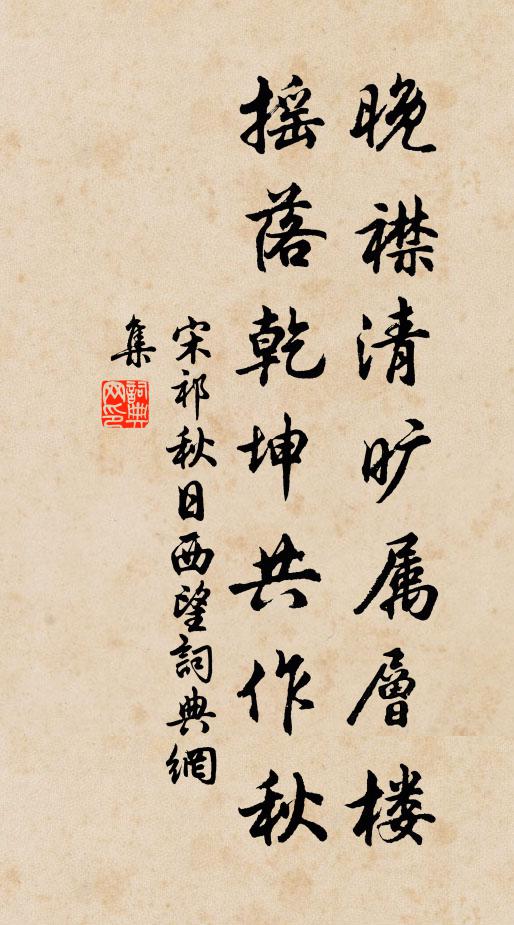 晚襟清旷属層楼
摇落乾坤共作秋
宋祁秋日西望詞典網
集
詞典
网印